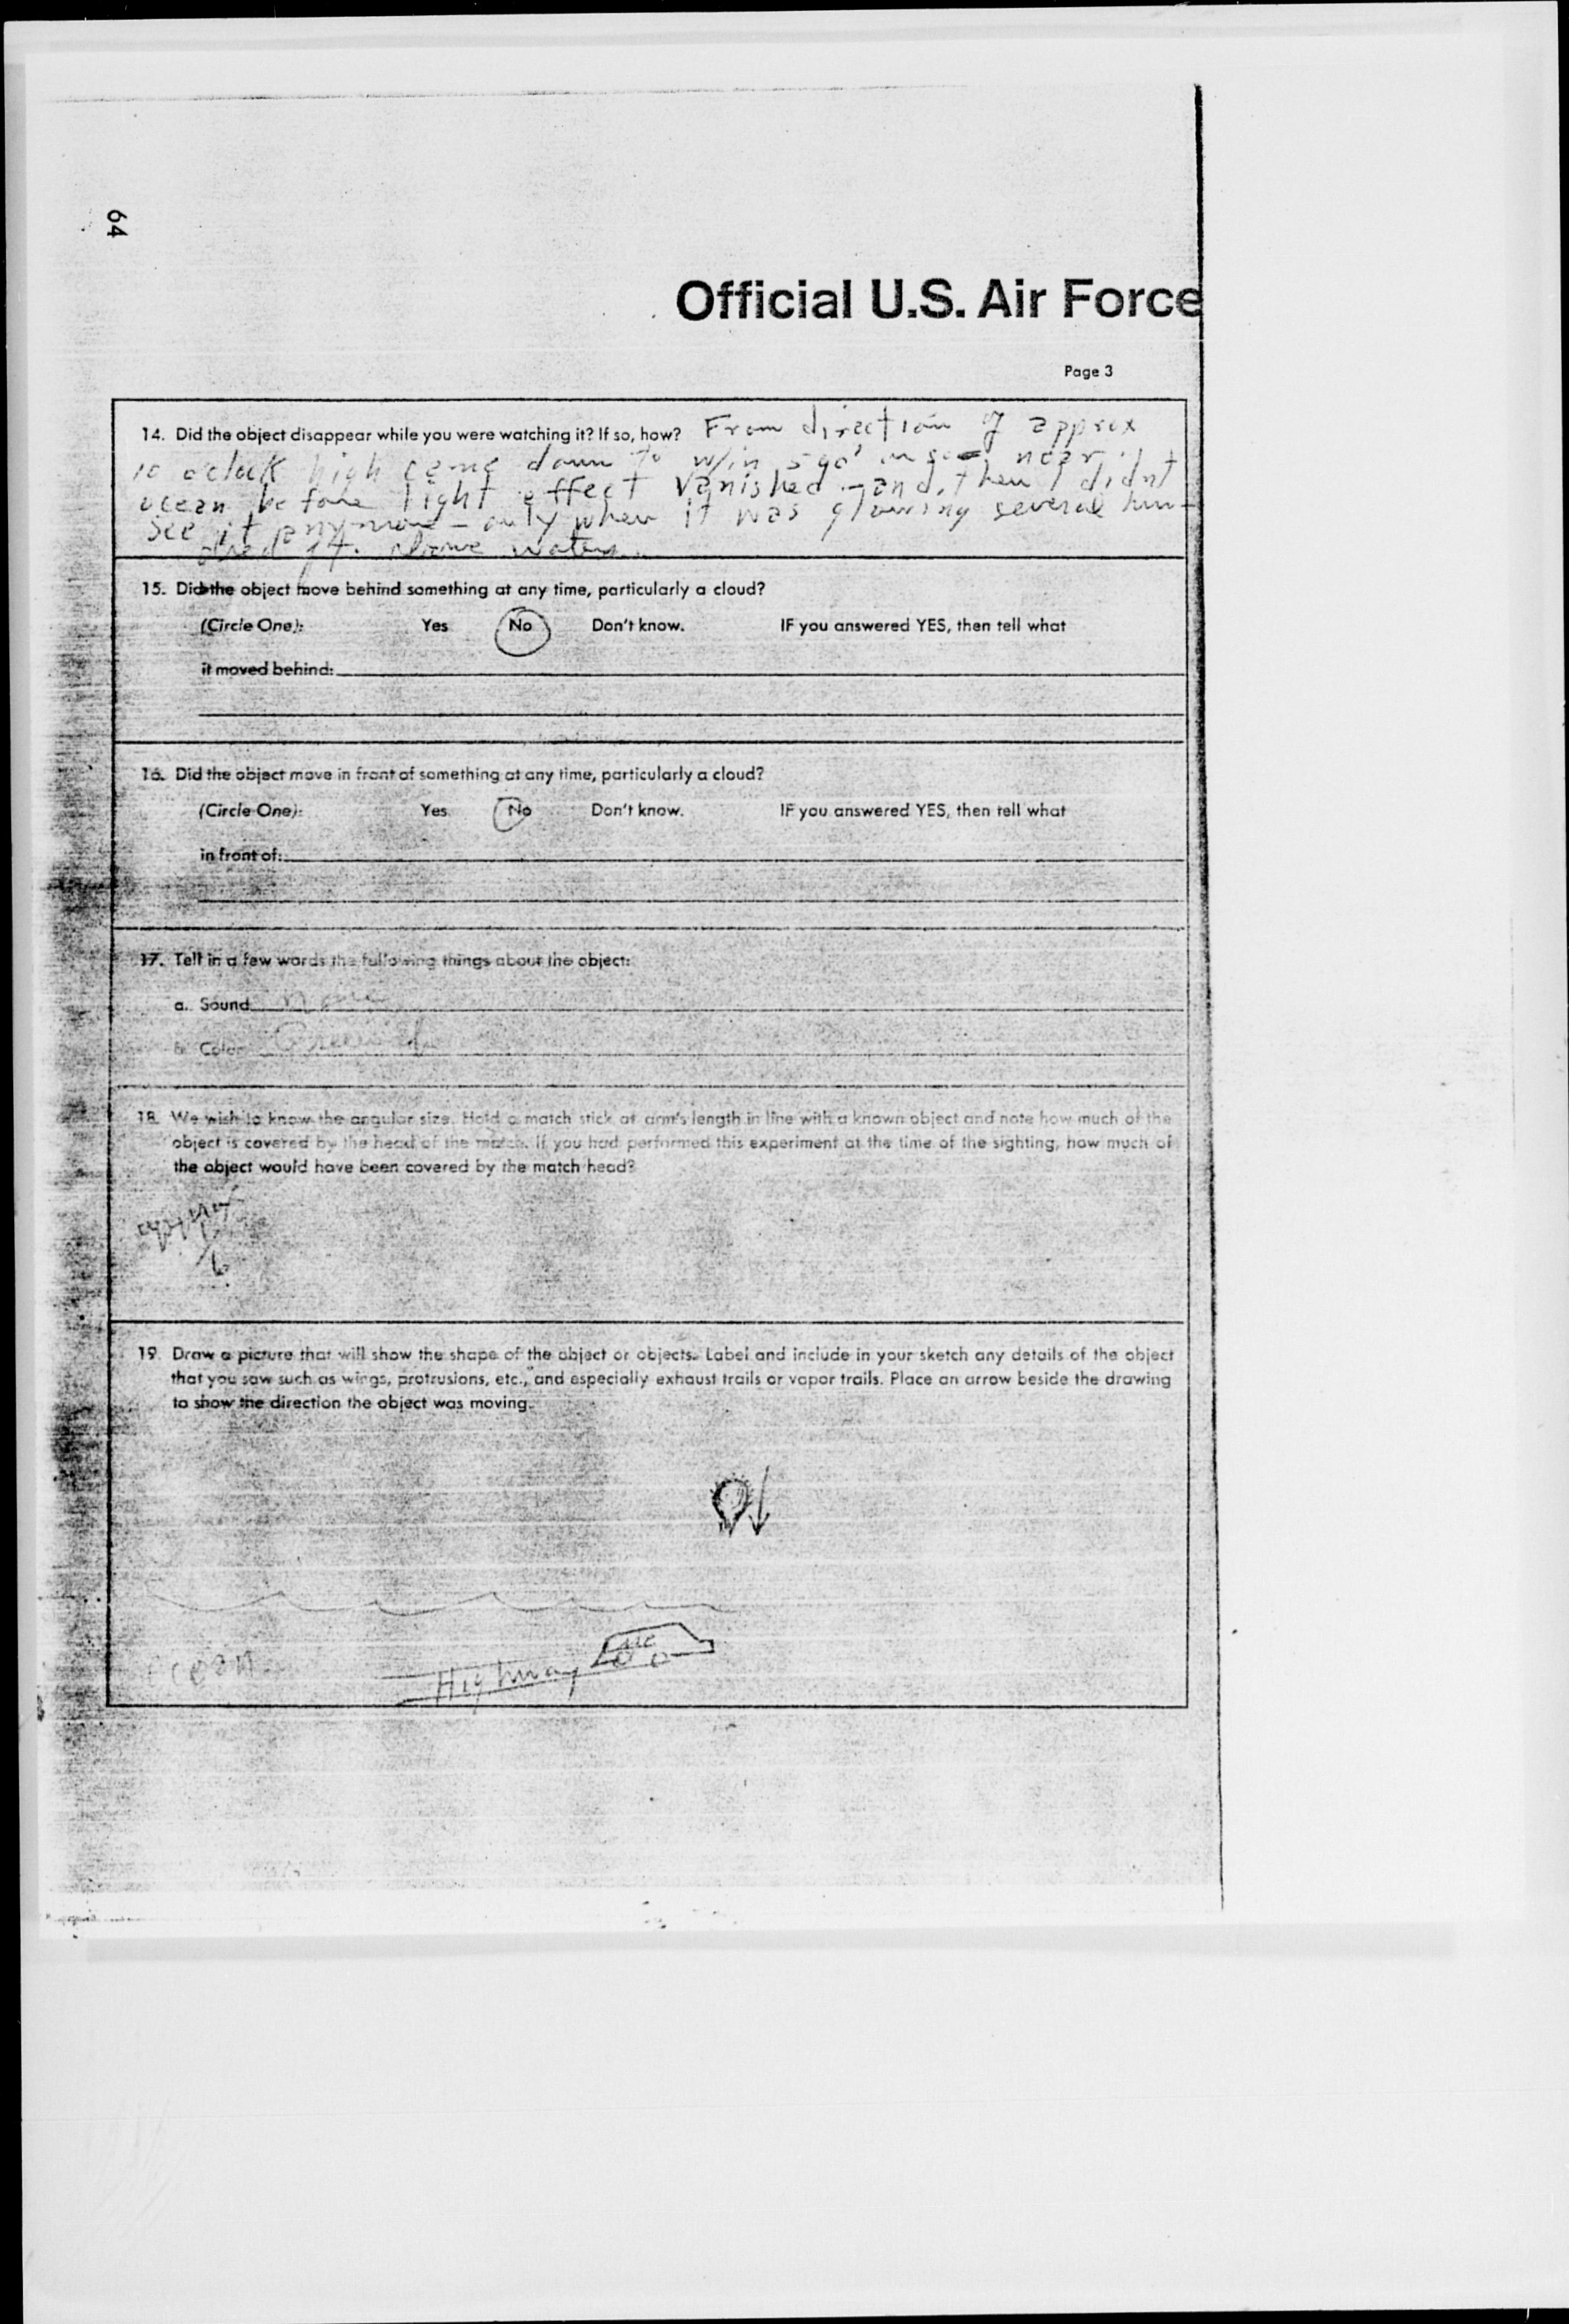 64
Official U.S. Air Force
Page 3
14. Did the object disappear while you were watching it? If so, how? From direction of approx
10 o'clock high came down to w/in 500' or so near
ocean before light effect vanished - and then I didnt
see it anymore - only when it was glowing several hun-
dred ft. above water.
15. Did the object move behind something at any time, particularly a cloud?
(Circle One): Yes No Don't know. IF you answered YES, then tell what
it moved behind:
16. Did the object move in front of something at any time, particularly a cloud?
(Circle One): Yes No Don't know. IF you answered YES, then tell what
in front of:
17. Tell in a few words the following things about the object:
a. Sound none
b. Color Greenish
18. We wish to know the angular size. Hold a match stick at arm's length in line with a known object and note how much of the
object is covered by the head of the match. If you had performed this experiment at the time of the sighting, how much of
the object would have been covered by the match head?
approx
1/6
19. Draw a picture that will show the shape of the object or objects. Label and include in your sketch any details of the object
that you saw such as wings, protrusions, etc., and especially exhaust trails or vapor trails. Place an arrow beside the drawing
to show the direction the object was moving.
ocean
Highway
me